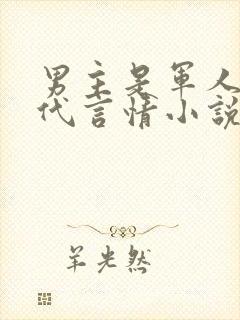 男主是軍人
代言情小說
羊光然